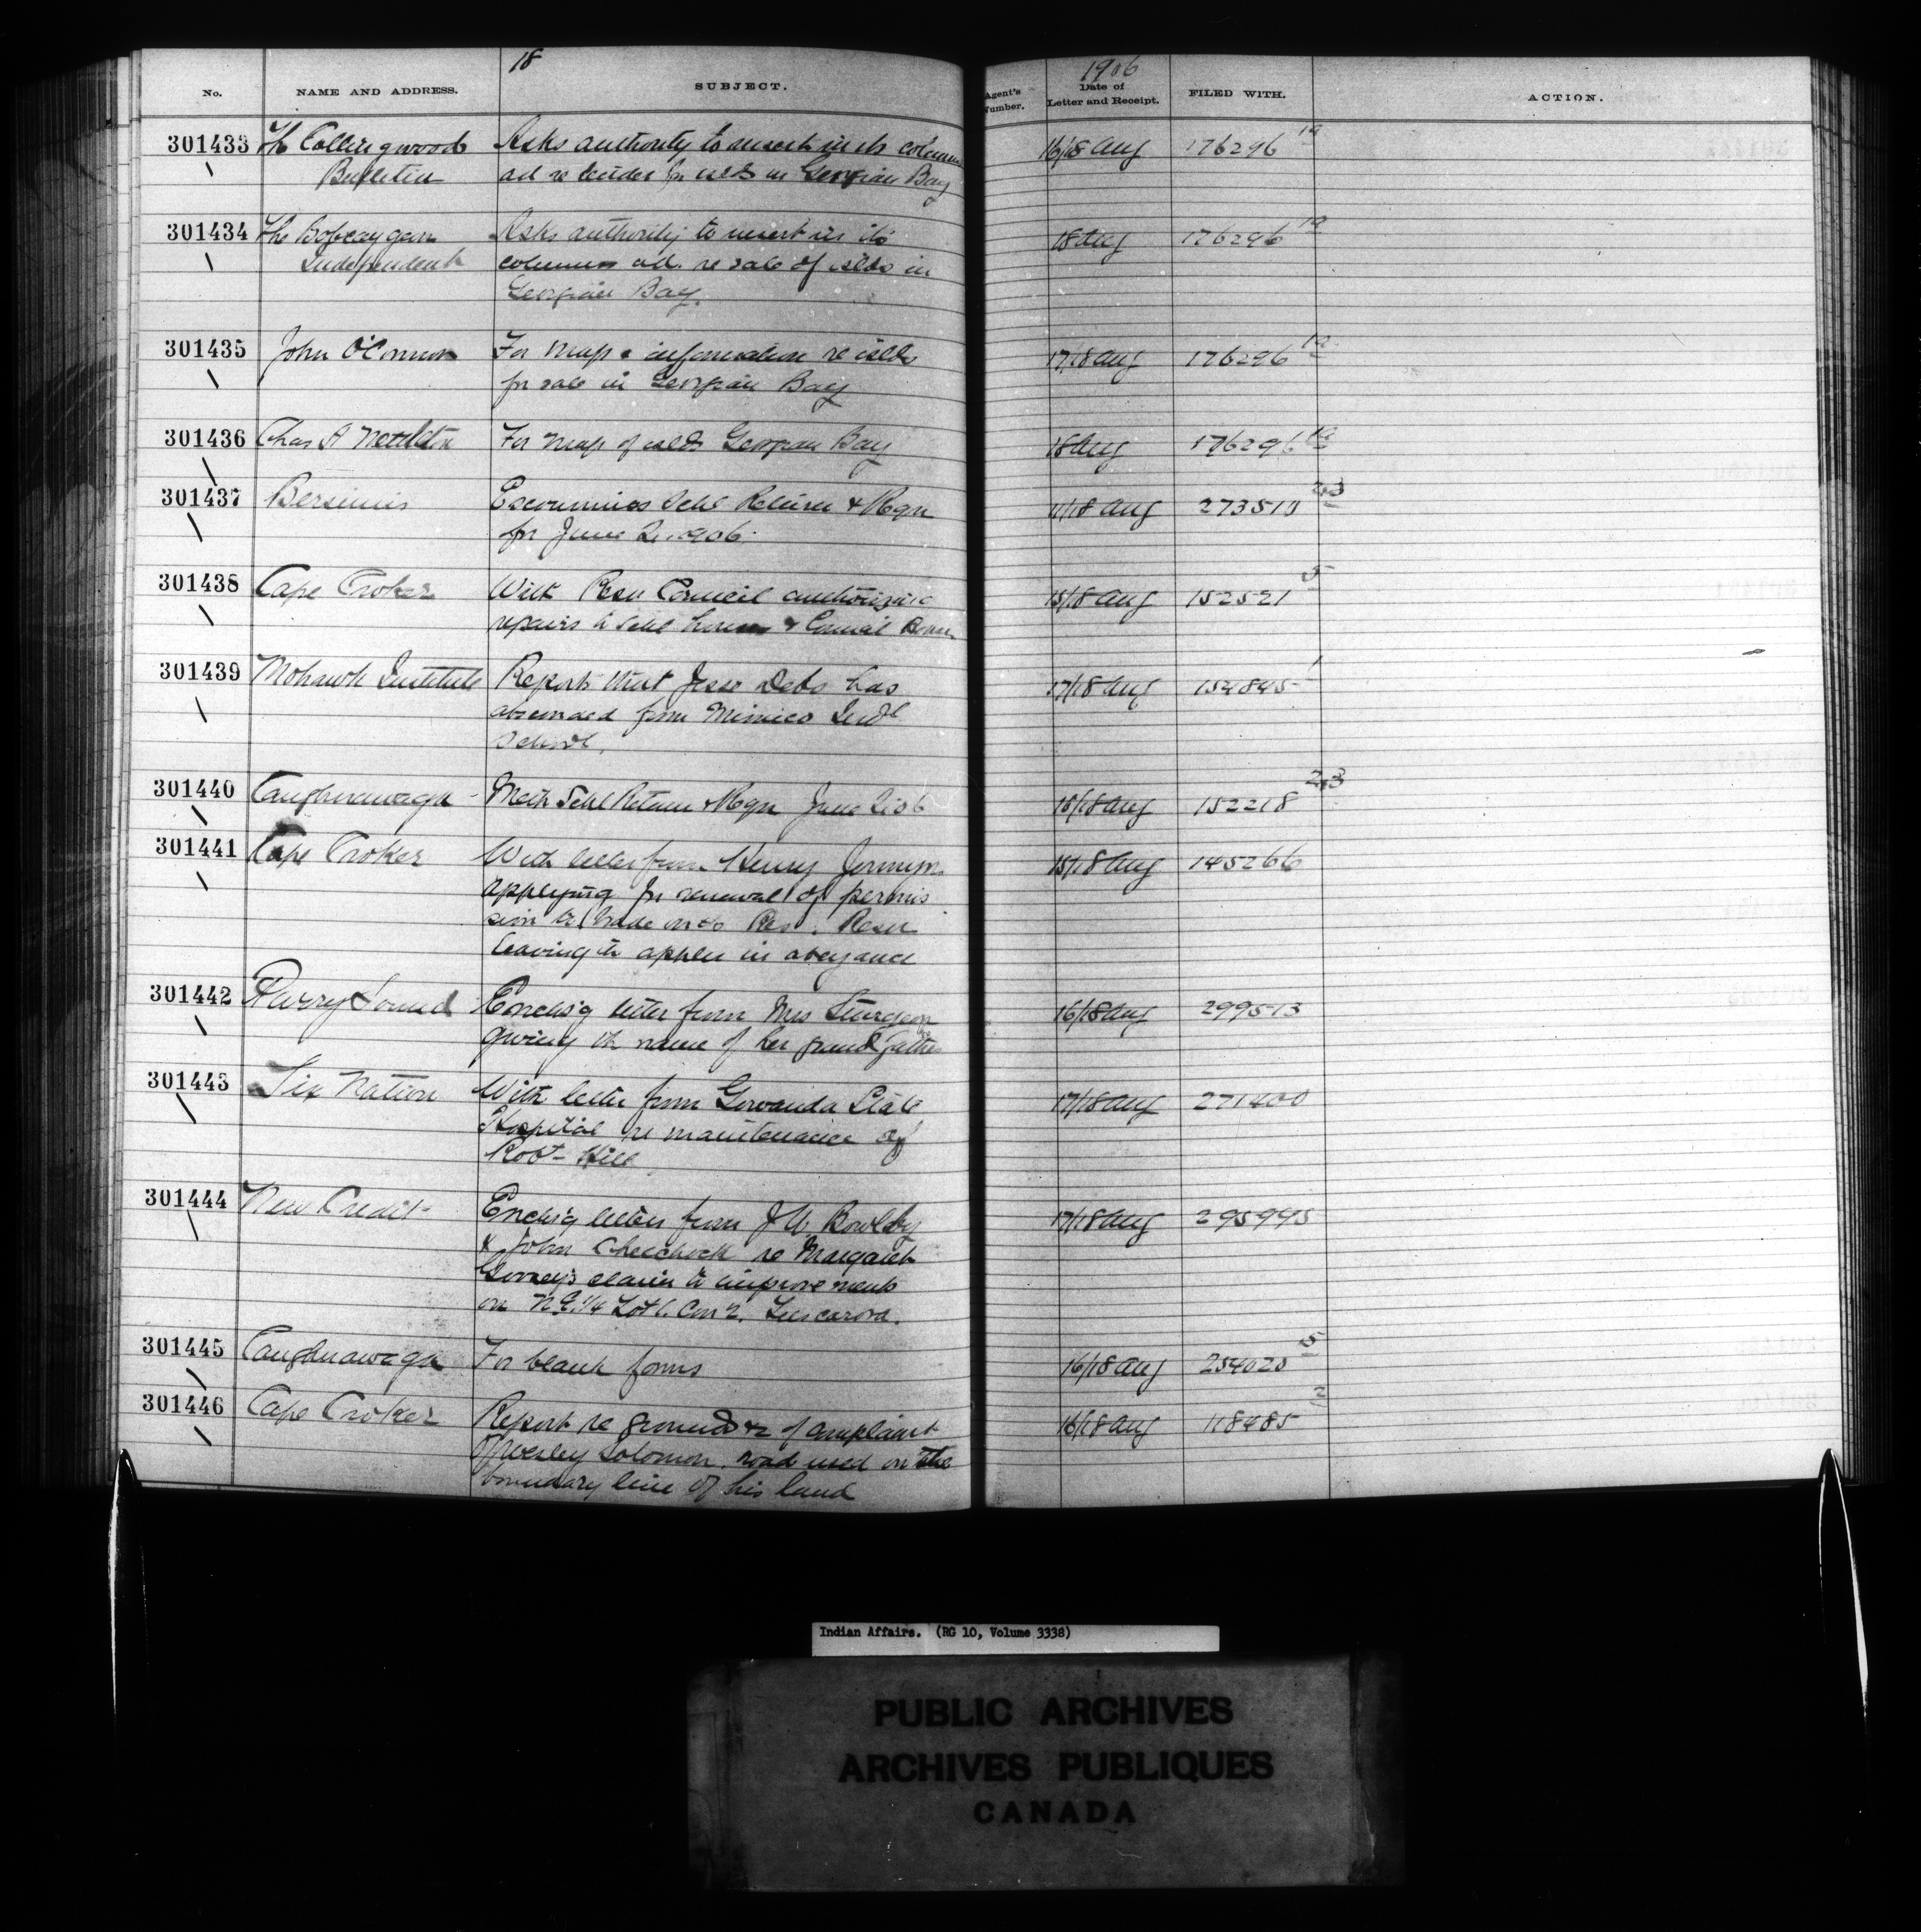 18
1906
No. NAME AND ADDRESS. SUBJECT. Agent's Number. Date of Letter and Receipt. FILED WITH. ACTION.
301433 The Collingwood Asks authority to insert in its columns 16/18 Aug 176296 1a
Bulletin ad re tender for islds in Georgian Bay
301434 The Bobcaygeon Asks authority to insert in its 18 Aug 176296 1a
Independent columns ad. re sale of islds in
Georgian Bay.
301435 John O'Connor For map & information re islds 17/18 Aug 176296 1a
for sale in Georgian Bay
301436 Chas A Nettleton For map of islds Georgian Bay 18 Aug 176296 1a
301437 Bersimis Escoumins Schl Return & Reqn 11/18 Aug 273510 2,3
for June Q. 1906.
301438 Cape Croker With Resn Council authorizing 15/18 Aug 152521 5
repairs to Schl house & Council House
301439 Mohawk Institute Reports that Jesse Debo has 17/18 Aug 154845 1
absconded from Mimico Indl
School.
301440 Caughnawaga Meth Schl Return & Reqn June Q 06 16/18 Aug 152218 2,3
301441 Cape Croker With letter from Henry 15/18 Aug 145266
applying for renewal of permis
sion to trade on the Res. Resn
leaving the appln in abeyance
301442 Parry Sound Enclos'g letter from Mrs Sturgeon 16/18 Aug 299513
giving the name of her grandfather
301443 Six Nation With letter from Gowanda State 17/18 Aug 271400
Hospital re maintenance of
Robt Hill
301444 New Credit Enclos'g letters from J.W. Bowlby 17/18 Aug 295995
& John Chechock re Margaret
claim to improvements
on N.E. 1/4 Lot 1. Con 2. Tuscarora.
301445 Caughnawaga For blank forms 16/18 Aug 254020 5
301446 Cape Croker Report re grounds of complaint 16/18 Aug 118485
of Wesley Solomon. road used on the
boundary line of his land
Indian Affairs. (RG 10, Volume 3338)
PUBLIC ARCHIVES
ARCHIVES PUBLIQUES
CANADA